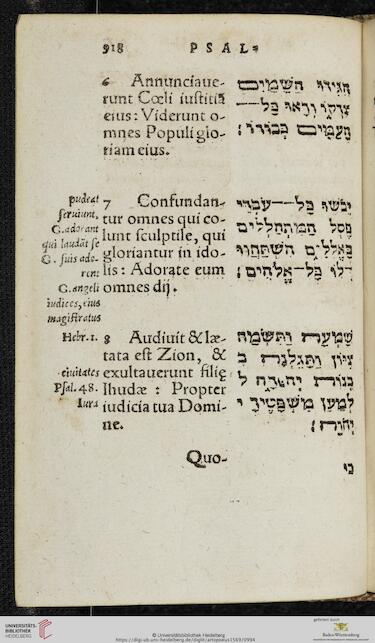 918 PSAL-
6 Annunciaue-
runt Cœli iustitiã
eius: Viderunt o-
mnes Populi glo-
riam eius.
הִגִּידוּ הַשָּׁמַיִם
צִדְקוֹ וְרָאוּ כָל־
הָעַמִּים כְּבוֹדוֹ׃
pudeat
seruiunt,
G. adorant
qui laudãt se
G. suis ado-
rent
G. angeli
iudices, eius
magistratus
7 Confundan-
tur omnes qui co-
lunt sculptile, qui
gloriantur in ido-
lis: Adorate eum
omnes dij.
יֵבֹשׁוּ כָּל־עֹבְדֵי
פֶסֶל הַמִּתְהַלְלִים
בָּאֱלִילִים הִשְׁתַּחֲווּ
לוֹ כָּל־אֱלֹהִים׃
Hebr. 1.
ciuitates
Psal. 48.
Iura
8 Audiuit & læ-
tata est Zion, &
exultauerunt filię
Ihudæ: Propter
iudicia tua Domi-
ne.
שָׁמְעָה וַתִּשְׂמַח
צִיּוֹן וַתָּגֵלְנָה בּ
בְּנוֹת יְהוּדָה ל
לְמַעַן מִשְׁפָּטֶיךָ י
יְהֹוָה׃
Quo-
כִּי
UNIVERSITÄTS-
BIBLIOTHEK
HEIDELBERG
https://digi.ub.uni-heidelberg.de/diglit/artopoeus1569/0994
© Universitätsbibliothek Heidelberg
gefördert durch
Baden-Württemberg